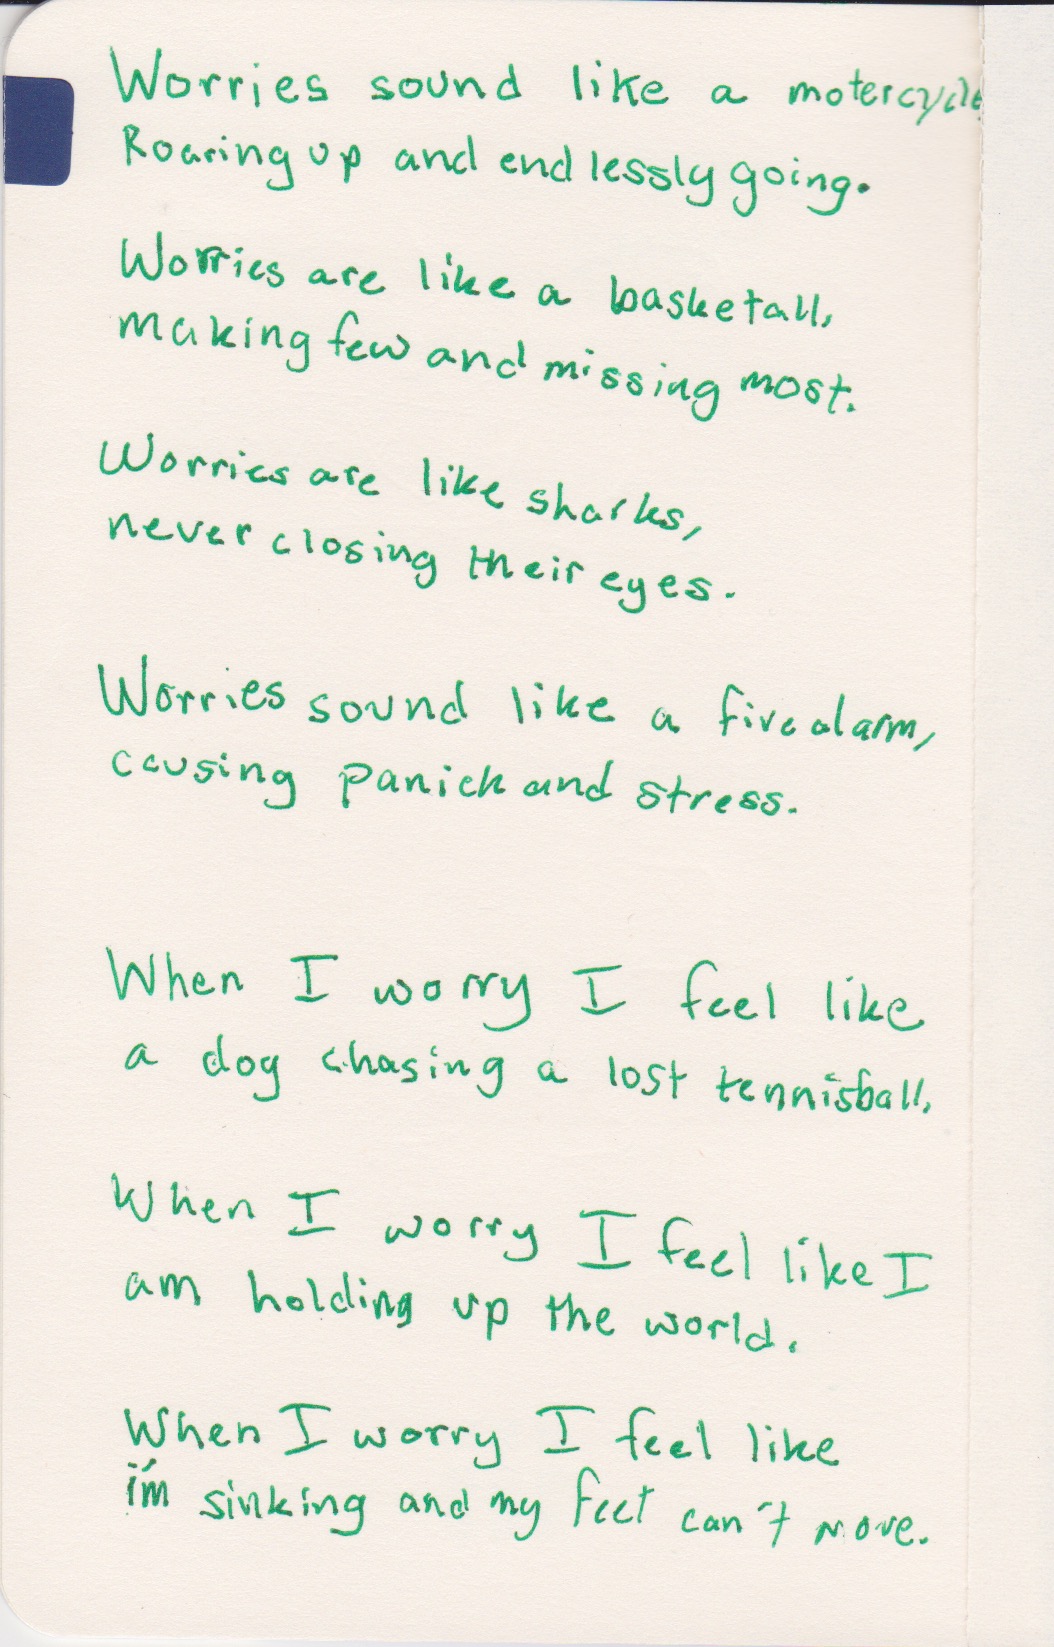 Worries sound like a motercycle
Roaring up and endlessly going.
Worries are like a basketall,
making few and missing most.
Worries are like sharks,
never closing their eyes.
Worries sound like a fire alarm,
causing panick and stress.
When I worry I feel like
a dog chasing a lost tennisball.
When I worry I feel like I
am holding up the world.
When I worry I feel like
i'm sinking and my feet can't move.